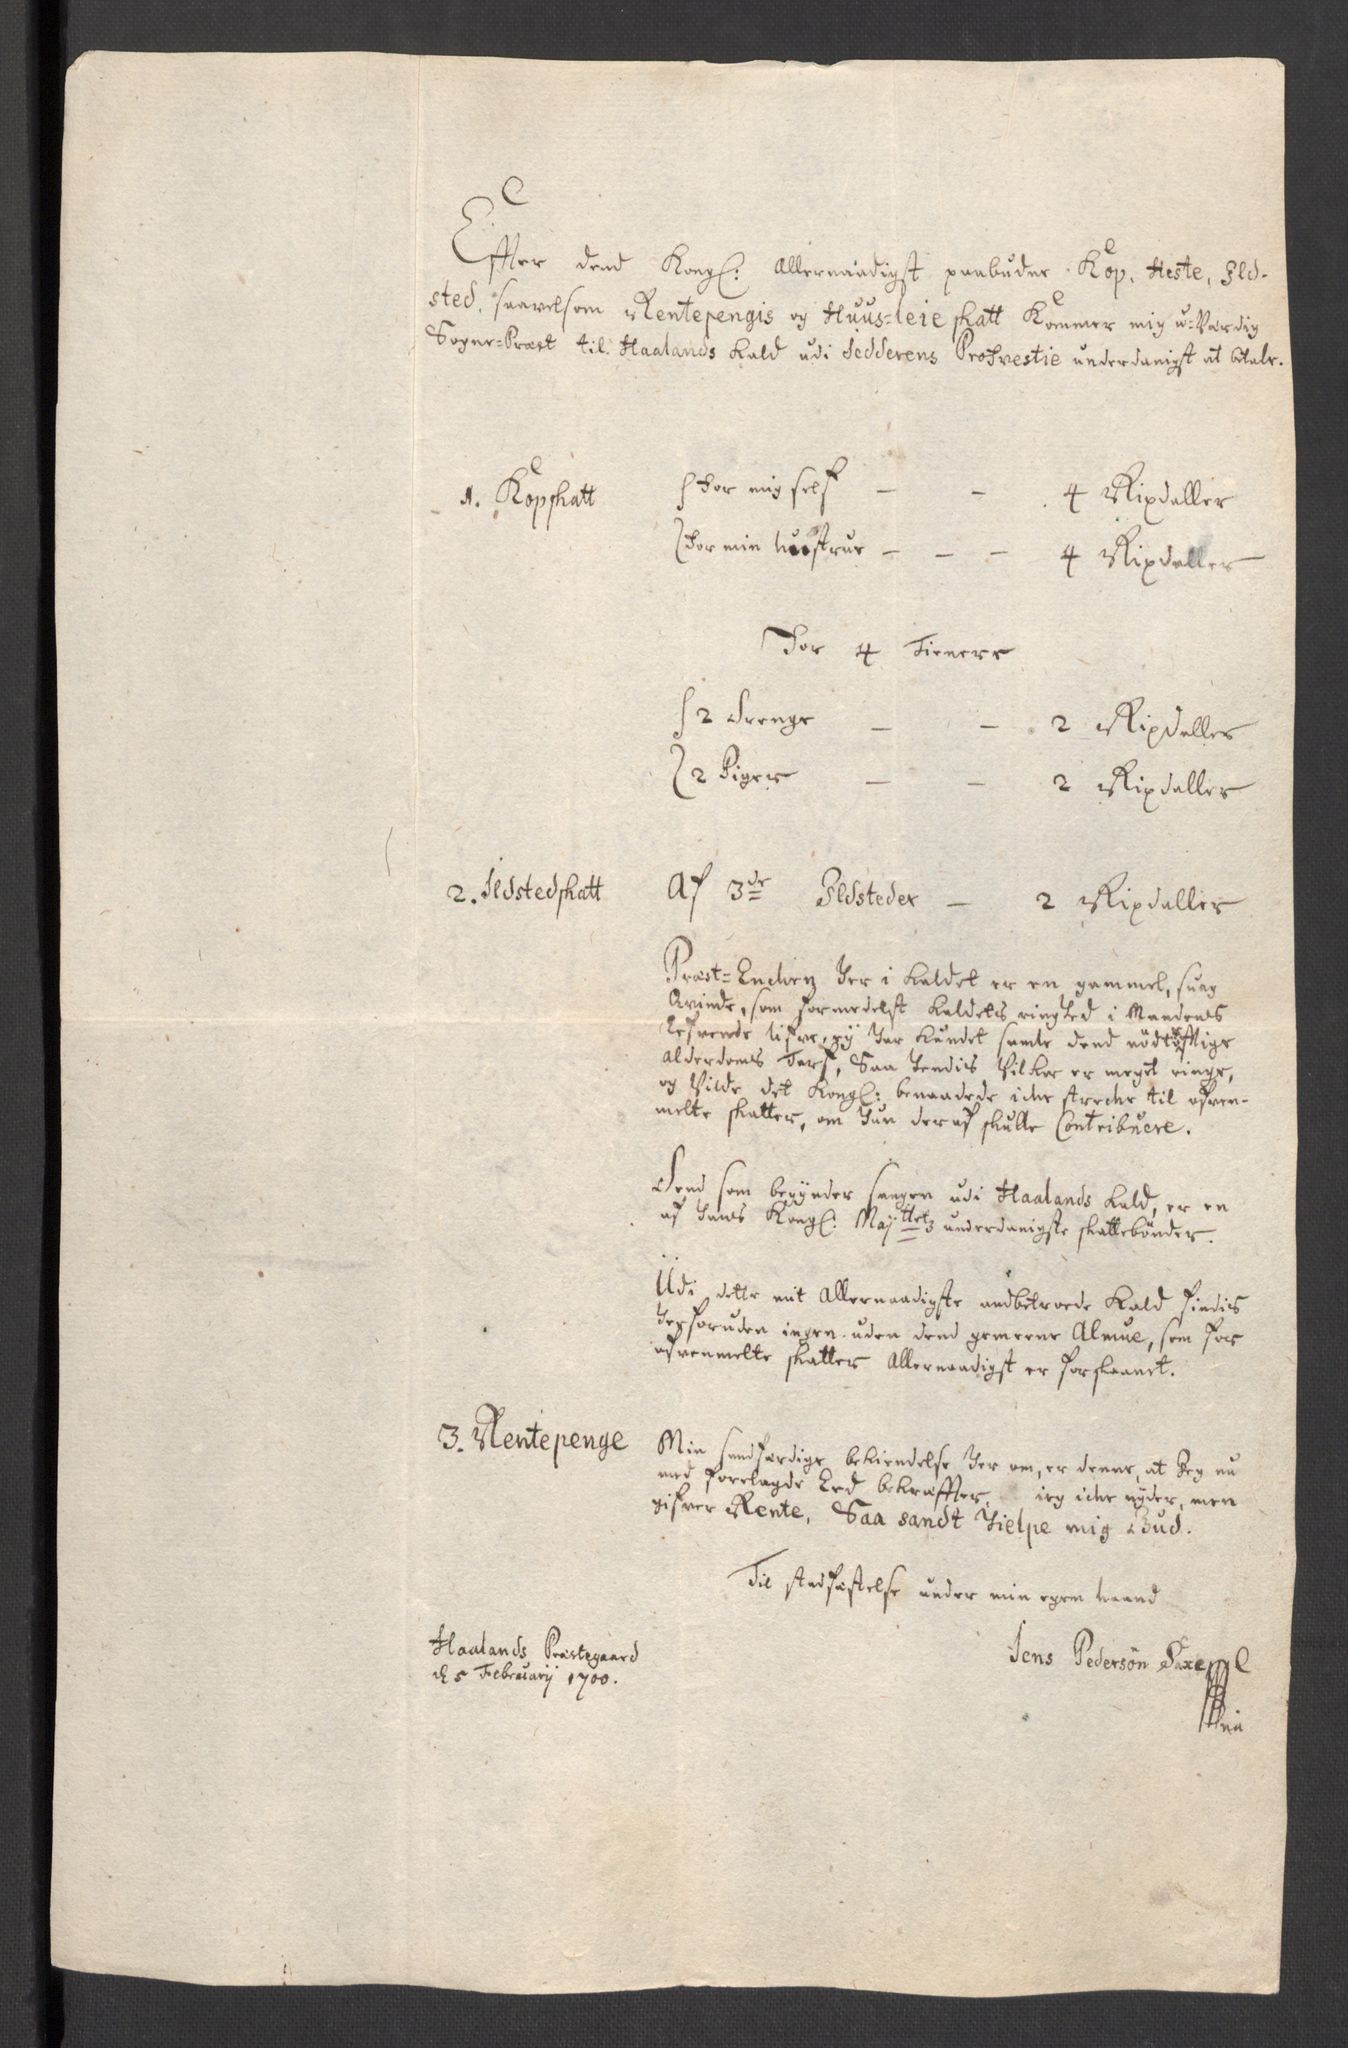 Effter dend Kongl: Allernaadigst paabudne Kop, Heste, Ild-
sted, saavelsom Rentepengis og Huus-leie skatt Kommer mig u-Værdig
Sogne-Præst til Haalands Kald udi Jedderens Profvestie underdanigst at betale.
1. Kopskatt for mig self - - 4 Rixdaller
for min hustrue - - - 4 Rixdaller
For 4 Tienere
2 Drenge - - 2 Rixdaller
2 Piger - - 2 Rixdaller
2. Ildstedskatt Af 3de Ildsteder - 2 Rixdaller
Præst-Enchen her i Kaldet er en gammel, suag
Qvinde, som formedelst Kaldets ringhed i Mandens
Lefvende lifve, ey har Kundet samle dend nödtörftige
alderdoms Tarf, Saa hendis Vilkor er meget ringe,
og Vilde det Kongl: benaadede icke strecke til ofven-
melte skatter, om hun deraf skulle Contribuere.
Dend som begynder sangen udi Haalands Kald, er en
af hans Kongl: Mayttetz underdanigste skattebönder.
Udi dette mit Allernaadigste andbetroede Kald findis
herforuden ingen uden dend gemeene Almue, som for
ofvenmelte skatter Allernaadigst er forskaanet.
3. Rentepenge Min sandfærdige bekiendelse her om, er denne, at Jeg nu
med forelagde Eed bekræffter, ieg icke nyder, men
gifver Rente, Saa sandt hielpe mig Gud.
Til stadfæstelse under min egen haand
Haalands Præstegaard
d 5 Februarij 1700.
Jens Pedersön